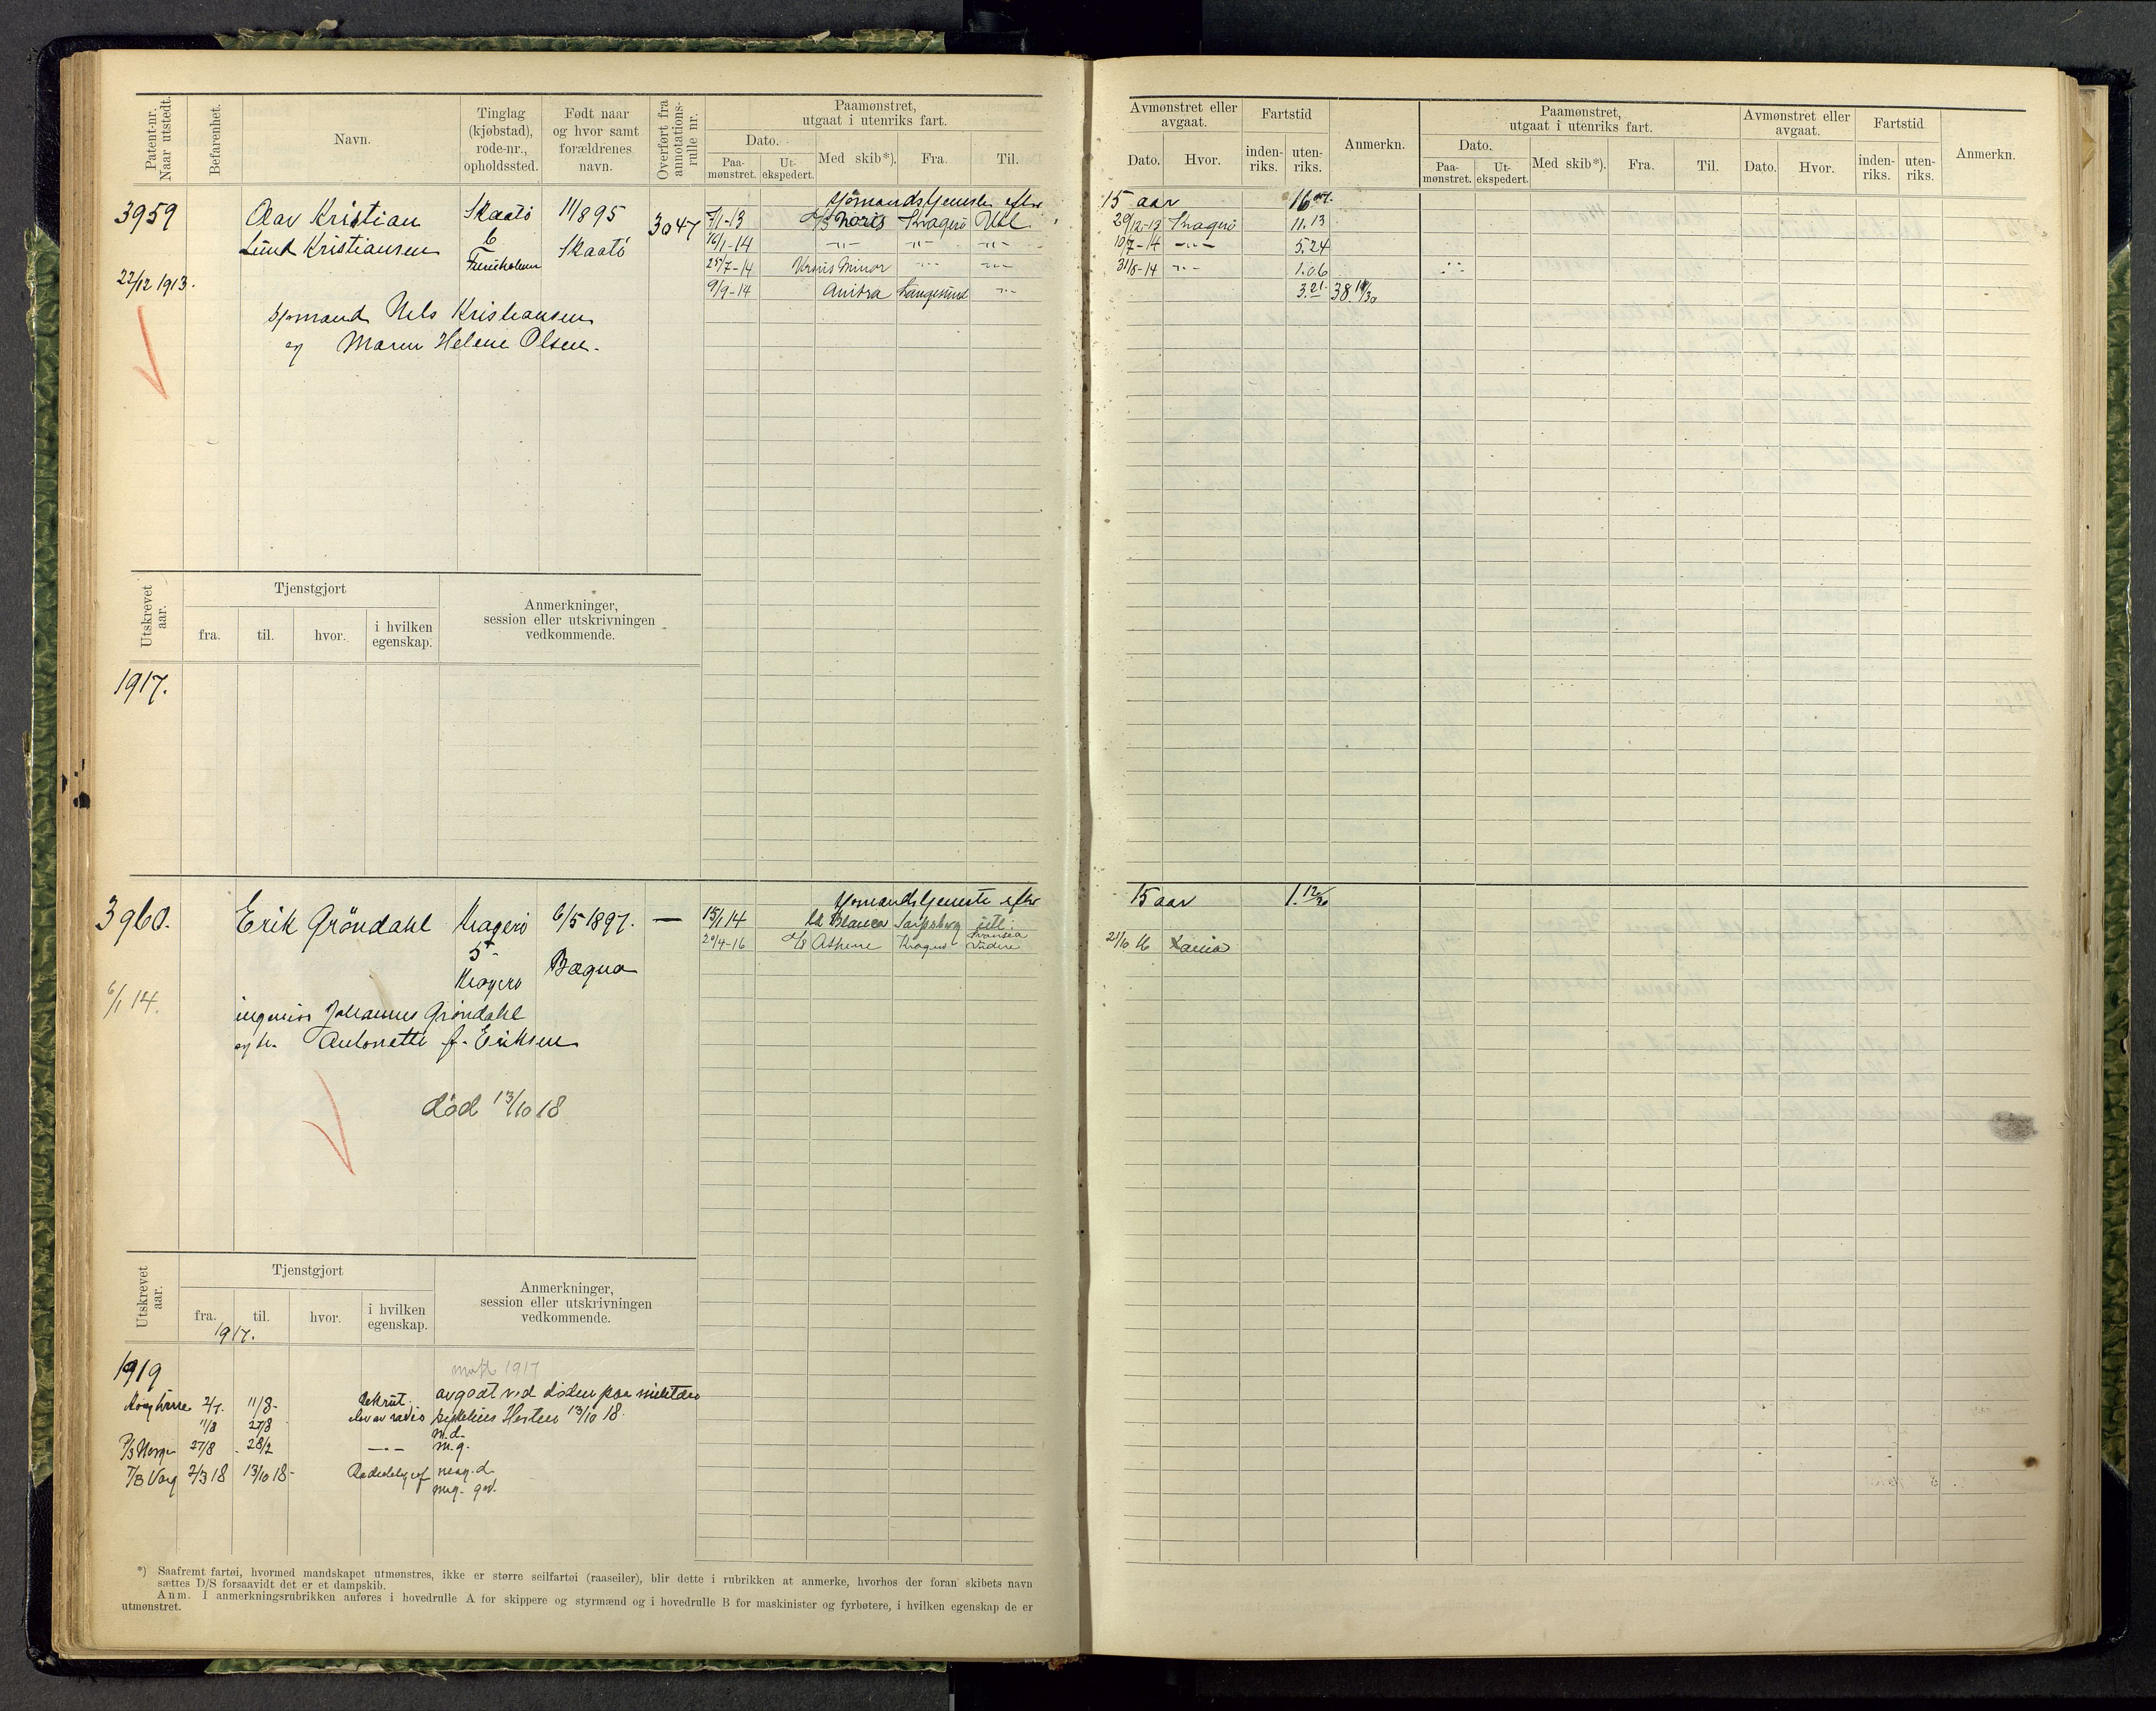 Patent-nr. Naar utstedt.
Befarenhet.
Navn.
Tinglag (kjøbstad), rode-nr., opholdssted.
Født naar og hvor samt forældrenes navn.
Overført fra annotations-rulle nr.
Paamønstret, utgaat i utenriks fart.
Dato.
Paa-mønstret.
Ut-ekspedert.
Med skib*).
Fra.
Til.
Avmønstret eller avgaat.
Dato.
Hvor.
Fartstid
inden-riks.
uten-riks.
Anmerkn.
Paamønstret, utgaat i utenriks fart.
Dato.
Paa-mønstret.
Ut-ekspedert.
Med skib*).
Fra.
Til.
Avmønstret eller avgaat.
Dato.
Hvor.
Fartstid
inden-riks.
uten-riks.
Anmerkn.
Sjømandstjeneste efter 15 aar
3959 Olav Kristian Skaatö 11/8 95 3047 7/1-13 Kragerö 29/12-13 Kragerö 11.13
Lund Kristiansen 6 Skaatö 16/1-14 -"- -"- -"- 10/7-14 -"- 5.24
25/7-14 Ursus Minor -"- -"- 31/8-14 -"- 1.06
22/12 1913. 9/9-14 Anitra Langesund -"- 3.21 38.
Sjömand Nils Kristiansen
og Maren Helene Olsen.
Utskrevet aar.
Tjenstgjort
fra.
til.
hvor.
i hvilken egenskap.
Anmerkninger, session eller utskrivningen vedkommende.
1917.
Sjømandstjeneste efter 15 aar
3960. Erik Gröndahl Kragerö 6/5 1897. — 15/1 14 Blanca Sarpsborg utl.
5 20/4-16 Athene Kragerö Swansea 21/6 16
Kragerö Bægna
6/1 14.
ingeniör Johannes Gröndahl
og h. Antonette f. Eriksen
död 13/10 18
Utskrevet aar.
Tjenstgjort
fra.
til.
hvor.
i hvilken egenskap.
Anmerkninger, session eller utskrivningen vedkommende.
1917.
1919
1917
avgaat ved döden paa militær
2/7. 11/8- Rekrut.
11/8 27/8 elev av radio sykehus Horten 13/10 18.
m.d.
P/S Norge 27/8 - 28/2 -"- m.g.
T/B Varg 2/3 18 13/10 18- meg. d.
meg. god.
*) Saafremt fartøi, hvormed mandskapet utmønstres, ikke er større seilfartøi (raaseiler), blir dette i rubrikken at anmerke, hvorhos der foran skibets navn
sættes D/S forsaavidt det er et dampskib.
Anm. I anmerkningsrubrikken anføres i hovedrulle A for skippere og styrmænd og i hovedrulle B for maskinister og fyrbøtere, i hvilken egenskap de er
utmønstret.